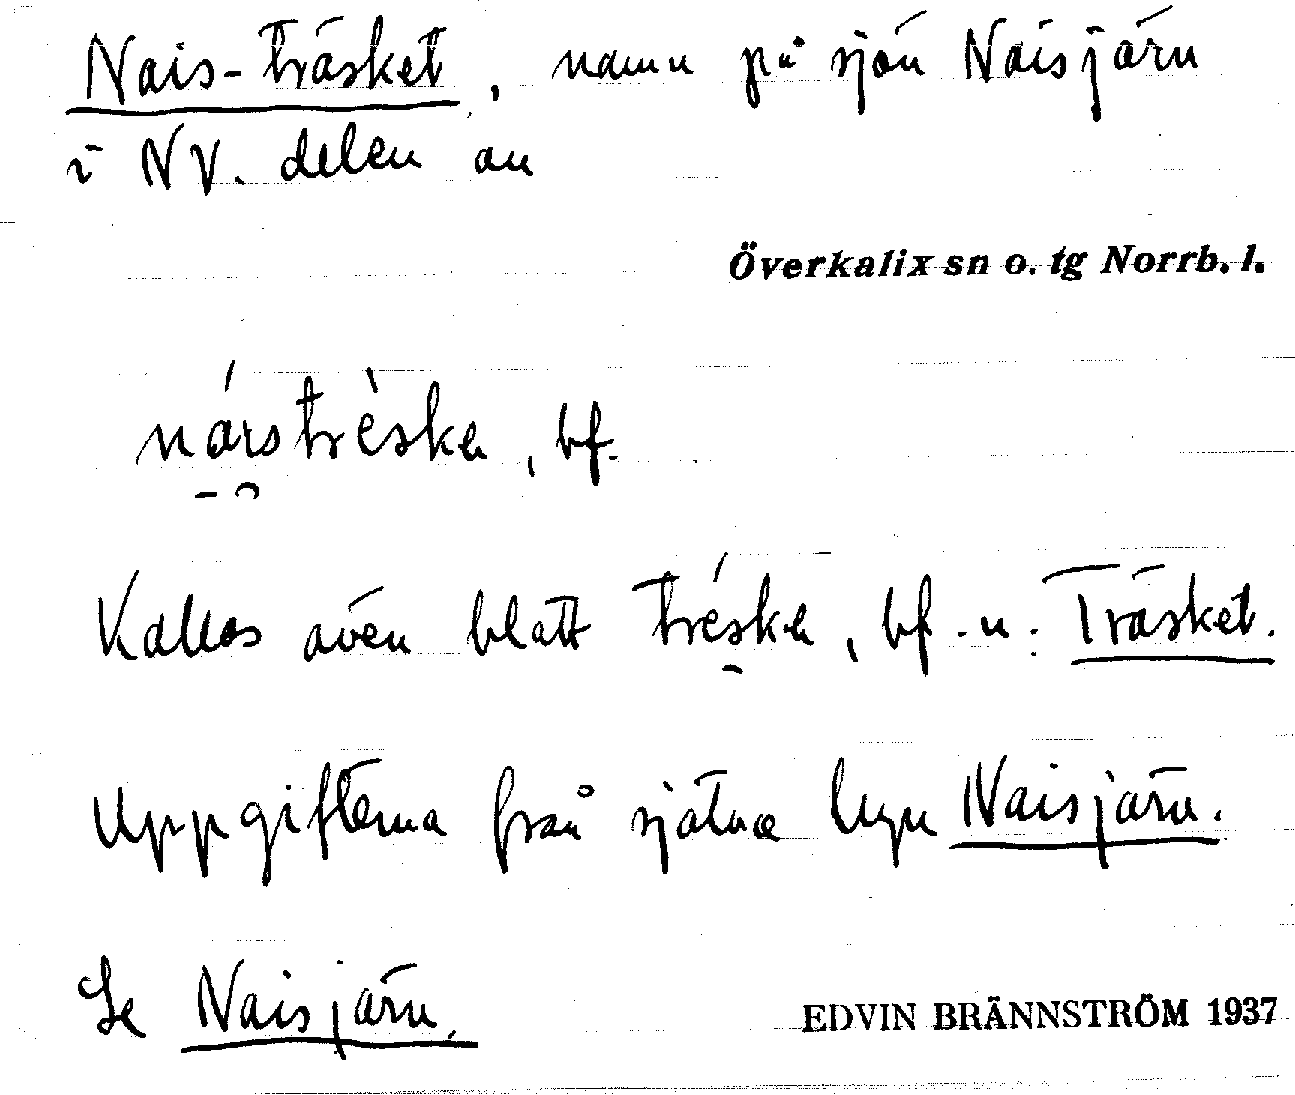 Nais-träsket, namn på sjön Naisjärv
i NV. delen av
Överkalix sn o. tg Norrb. l.
bf.
Kallas även blott bf. n. Träsket.
Uppgifterna från sjätna byn Naisjärv.
Se Naisjärv.
EDVIN BRÄNNSTRÖM 1937